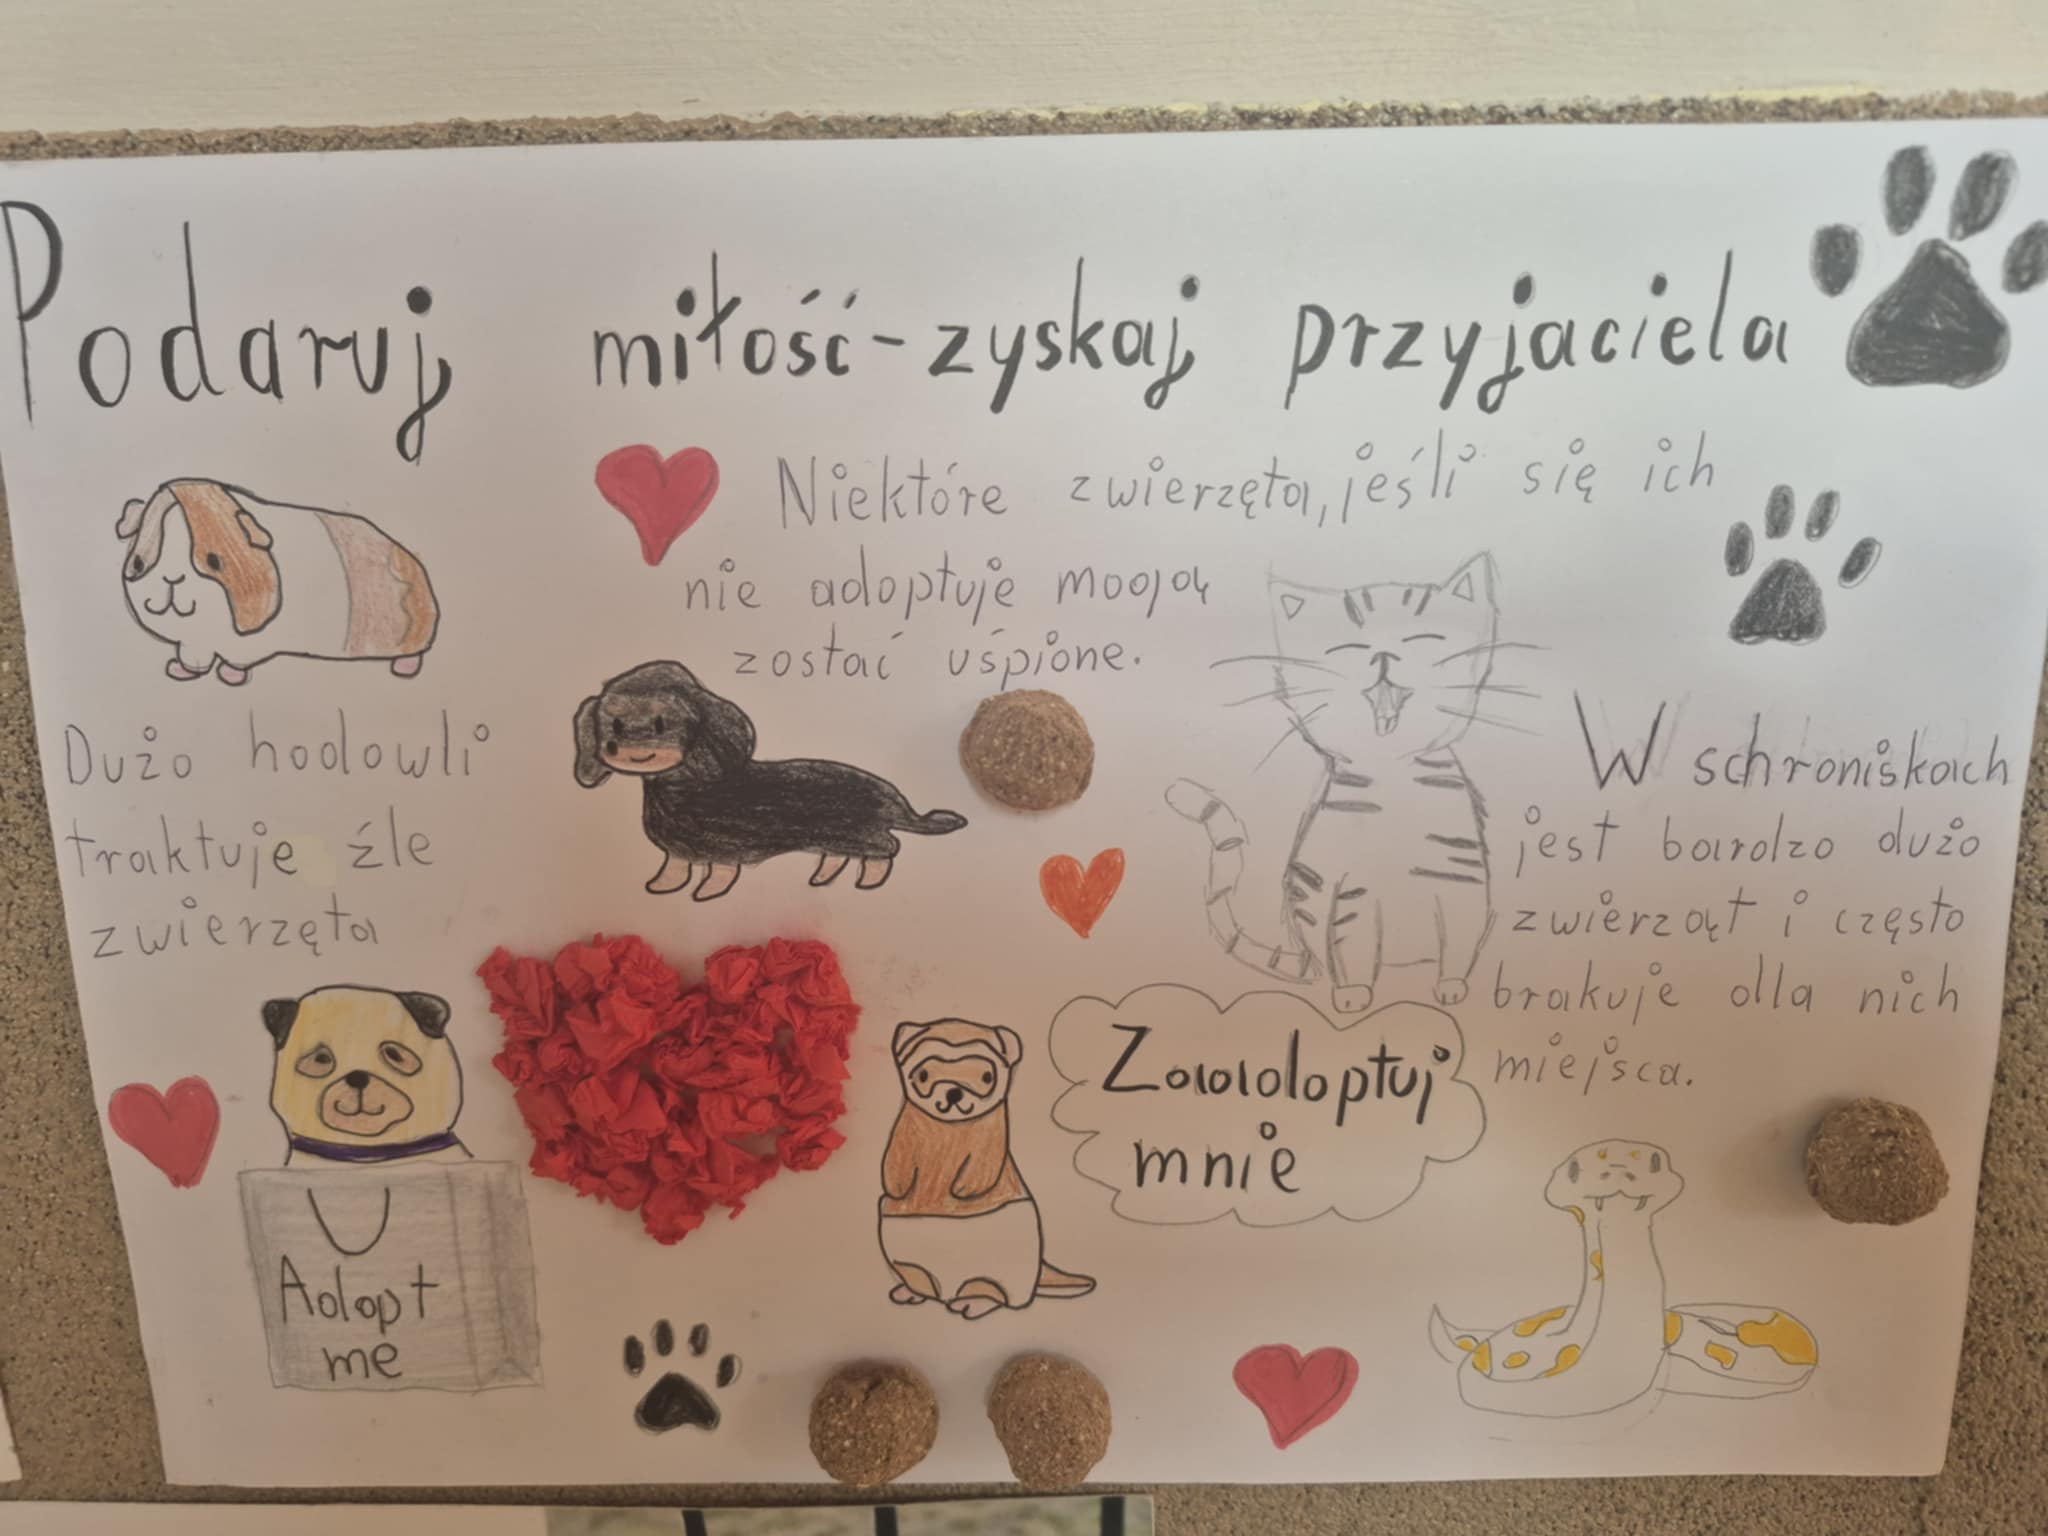 Podaruj miłość-zyskaj przyjaciela
Niektóre zwierzęta, jeśli się ich
nie adoptuje mogą
zostać uśpione.
Dużo hodowli
traktuje źle
zwierzęta
W schroniskach
jest bardzo dużo
zwierząt i często
brakuje dla nich
miejsca.
Zaadoptuj
mnie
Adopt
me